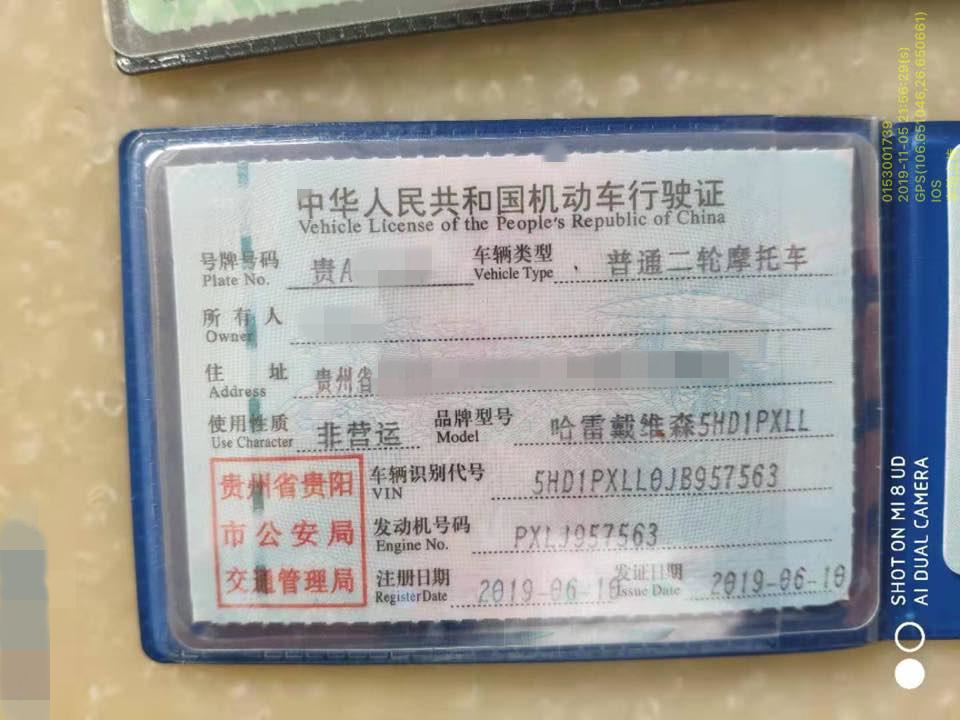 中华人民共和国机动车行驶证
Vehicle License of the People's Republic of China
号牌号码 贵A 车辆类型 普通二轮摩托车
Plate No. Vehicle Type
所有人
Owner
住址 贵州省
Address
使用性质 非营运 品牌型号 哈雷戴维森5HD1PXLL
Use Character Model
贵州省贵阳
市公安局
交通管理局
车辆识别代号 5HD1PXLL0JB957563
VIN
发动机号码 PXLJ957563
Engine No.
注册日期 2019-06-10 发证日期 2019-06-10
Register Date Issue Date
0153001739
2019-11-05 21:56:29(s)
GPS(106.651046,26.650661)
IOS
SHOT ON MI 8 UD
AI DUAL CAMERA